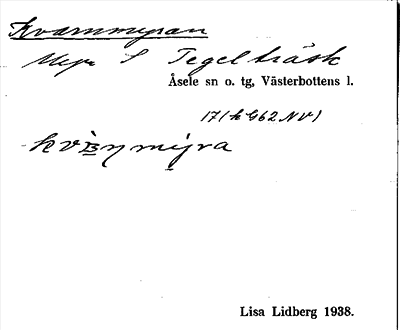 Kvarnmyran
Myr S Tegelträsk
Åsele sn o. tg, Västerbottens l.
17(h G62 NV)
Lisa Lidberg 1938.